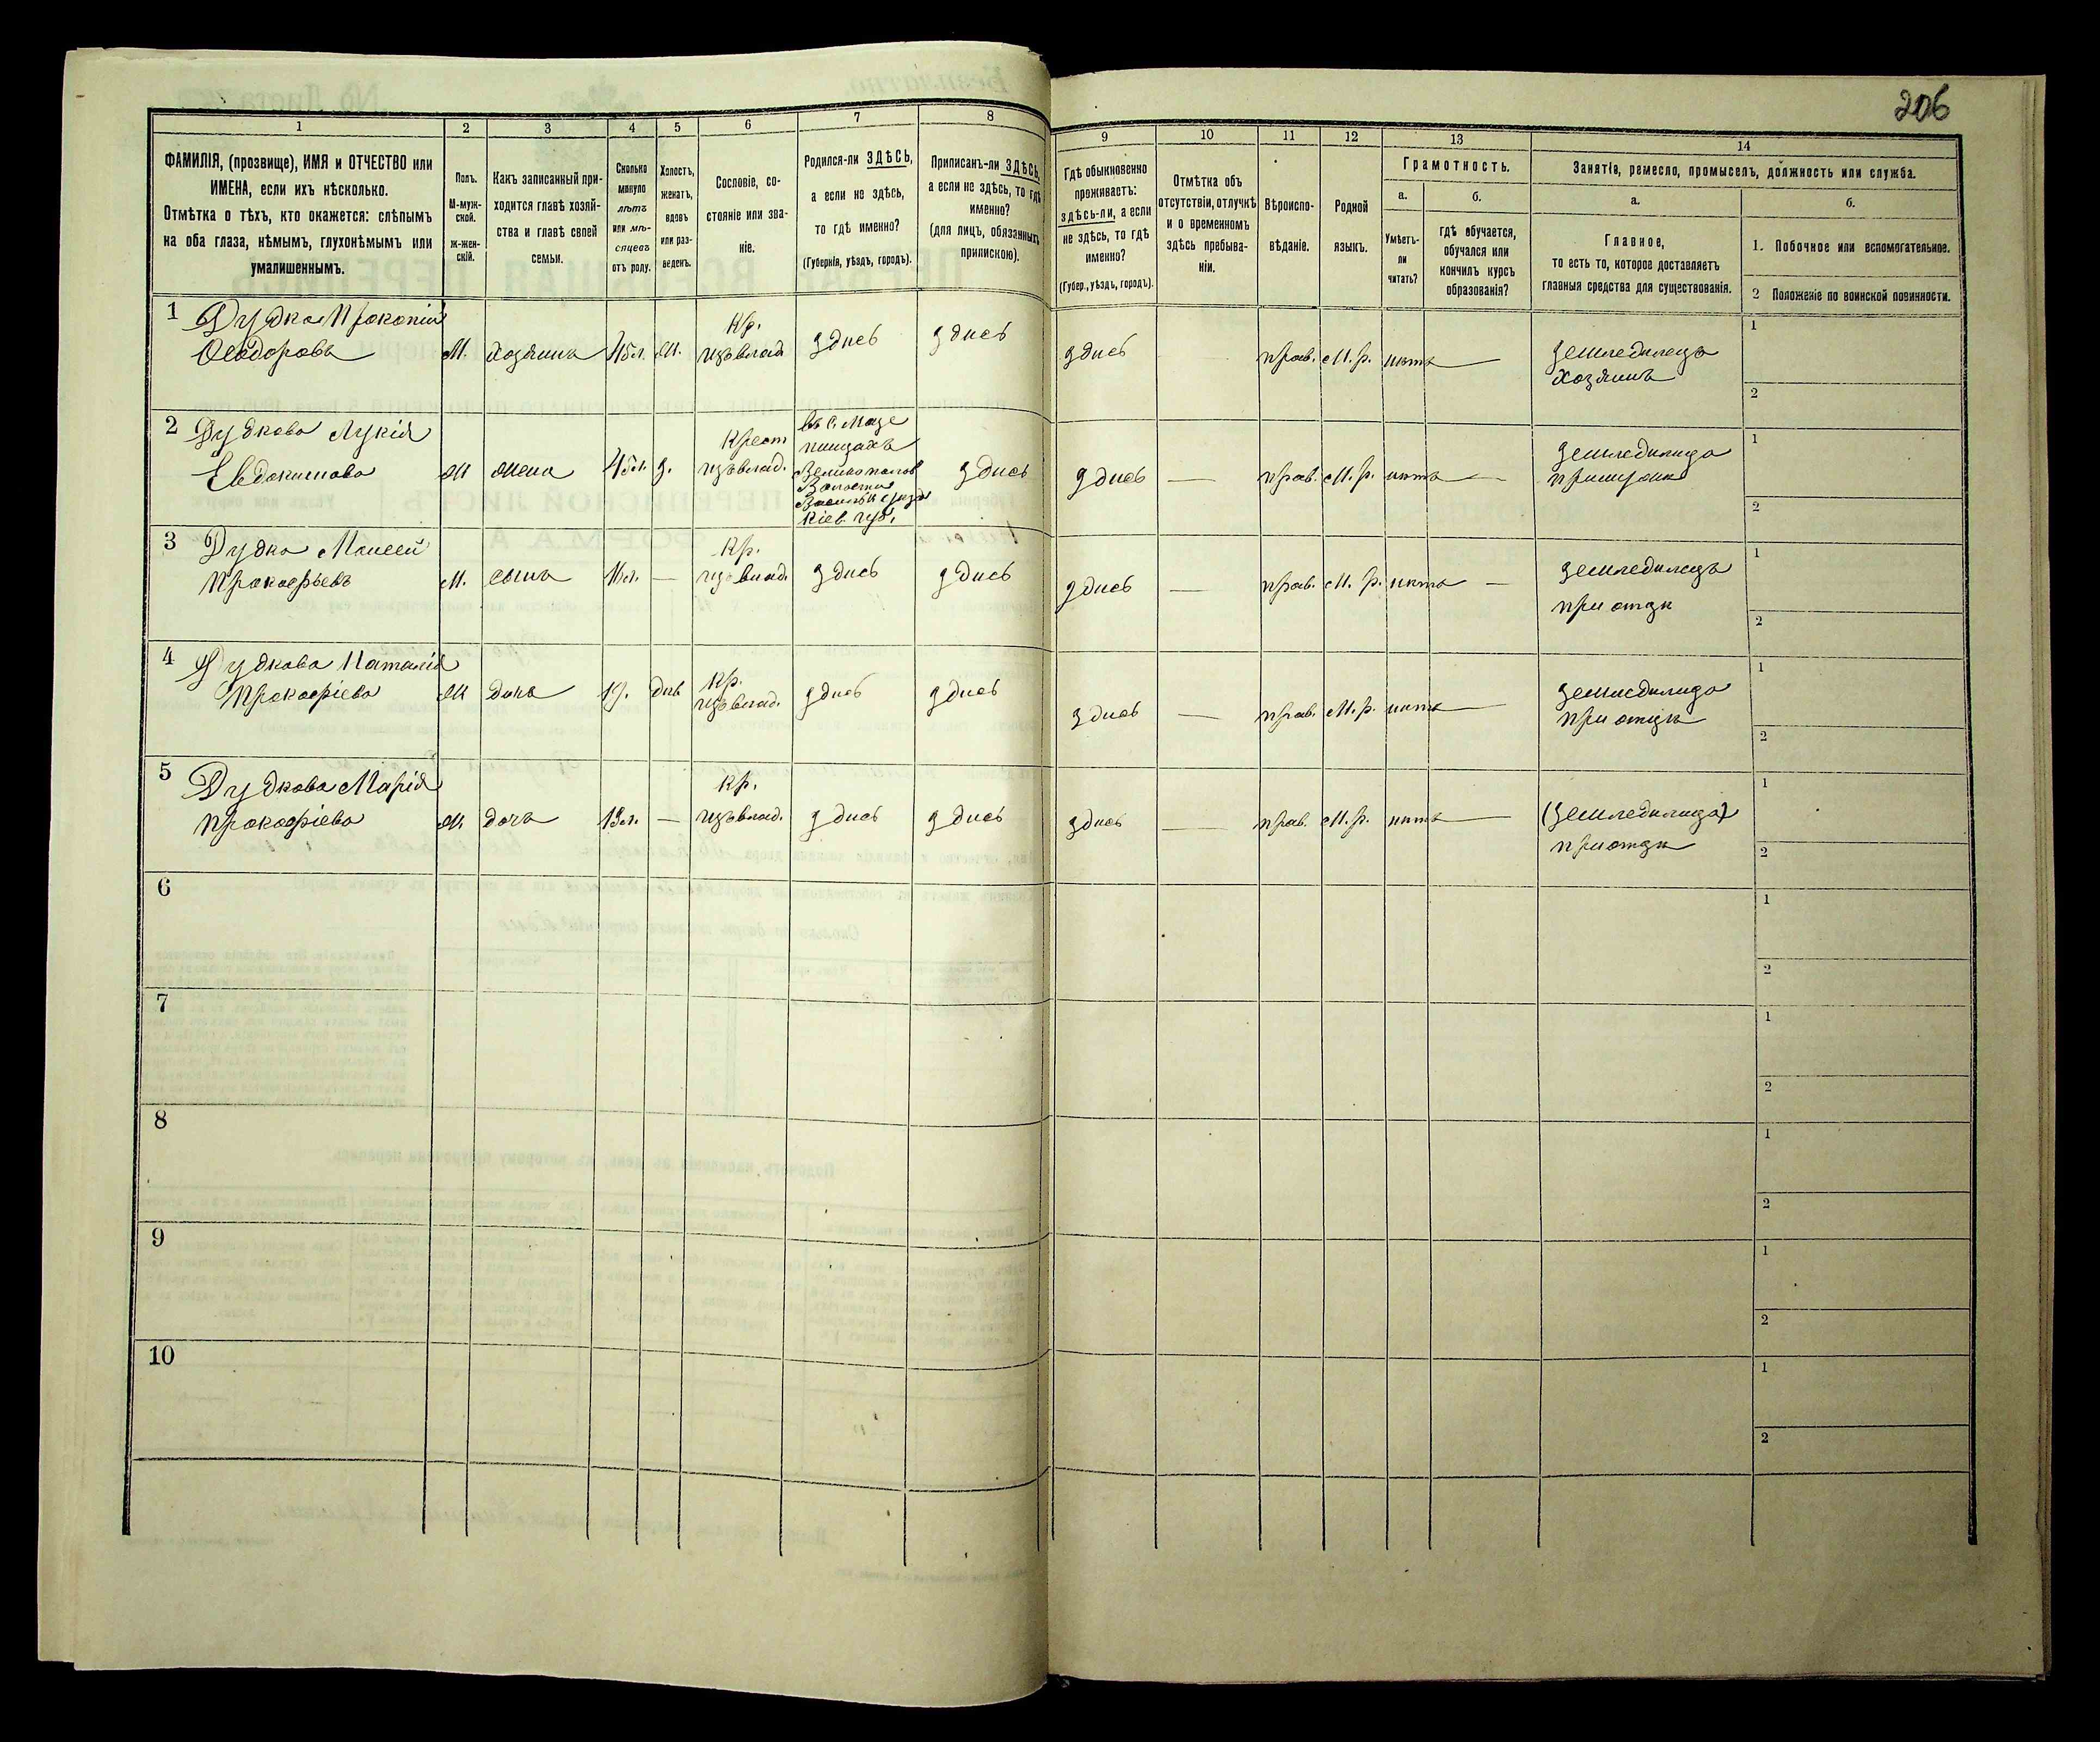 206
1
2
3
4
5
6
7
8
9
10
11
12
13
14
ФАМИЛІЯ, (прозвище), ИМЯ и ОТЧЕСТВО или
ИМЕНА, если ихъ нѣсколько.
Отмѣтка о тѣхъ, кто окажется: слѣпымъ
на оба глаза, нѣмымъ, глухонѣмымъ или
умалишеннымъ.
Полъ.
М-муж-
ской.
ж-жен-
скій.
Какъ записанный при-
ходится главѣ хозяй-
ства и главѣ своей
семьи.
Сколько
минуло
лѣтъ
или мѣ-
сяцевъ
отъ роду.
Холостъ,
женатъ,
вдовъ
или раз-
веденъ.
Сословіе, со-
стояніе или зва-
ніе.
Родился-ли ЗДѢСЬ,
а если не здѣсь,
то гдѣ именно?
(Губернія, уѣздъ, городъ).
Приписанъ-ли ЗДѢСЬ,
а если не здѣсь, то гдѣ
именно?
(для лицъ, обязанныхъ
припискою).
Гдѣ обыкновенно
проживаетъ:
здѣсь-ли, а если
не здѣсь, то гдѣ
именно?
(Губер., уѣздъ, городъ).
Отмѣтка объ
отсутствіи, отлучкѣ
и о временномъ
здѣсь пребыва-
ніи.
Вѣроиспо-
вѣданіе.
Родной
языкъ.
Грамотность.
а.
Умѣетъ-
ли
читать?
б.
гдѣ обучается,
обучался или
кончилъ курсъ
образованія?
Занятія, ремесло, промыселъ, должность или служба.
а.
Главное,
то есть то, которое доставляетъ
главныя средства для существованія.
б.
1. Побочное или вспомогательное.
2 Положеніе по воинской повинности.
1 Дудка Прокопій
Ѳеодоровъ
М. хозяинъ 45л. ж.
Кр.
изъ влад.
здѣсь здѣсь здѣсь прав. М.р. нѣтъ —
земледѣлецъ
хозяинъ
1
2
2 Дудкова Лукія
Евдокимова
ж жена 45л. з.
Крест
изъ влад.
въ с. Мазе
пинцахъ
Великополов
Волости
Васильк уѣзда
Кіев. губ.
здѣсь здѣсь — прав. М.р. нѣтъ —
земледѣлица
при мужѣ
1
2
3 Дудка Моисей
Прокофьевъ
М. сынъ 16л. —
Кр.
изъ влад.
здѣсь здѣсь здѣсь — прав. М.р. нѣтъ —
земледѣлецъ
при отцѣ
1
2
4 Дудкова Наталія
Прокофіева
ж дочь 19. дѣв
Кр.
изъ влад.
здѣсь здѣсь здѣсь — прав. М.р. нѣтъ —
земледѣлица
при отцѣ
1
2
5 Дудкова Марія
Прокофіева
ж дочь 13л. —
Кр.
изъ влад.
здѣсь здѣсь здѣсь — прав. М.р. нѣтъ —
(земледѣлица)
при отцѣ
1
2
6
1
2
7
1
2
8
1
2
9
1
2
10
1
2